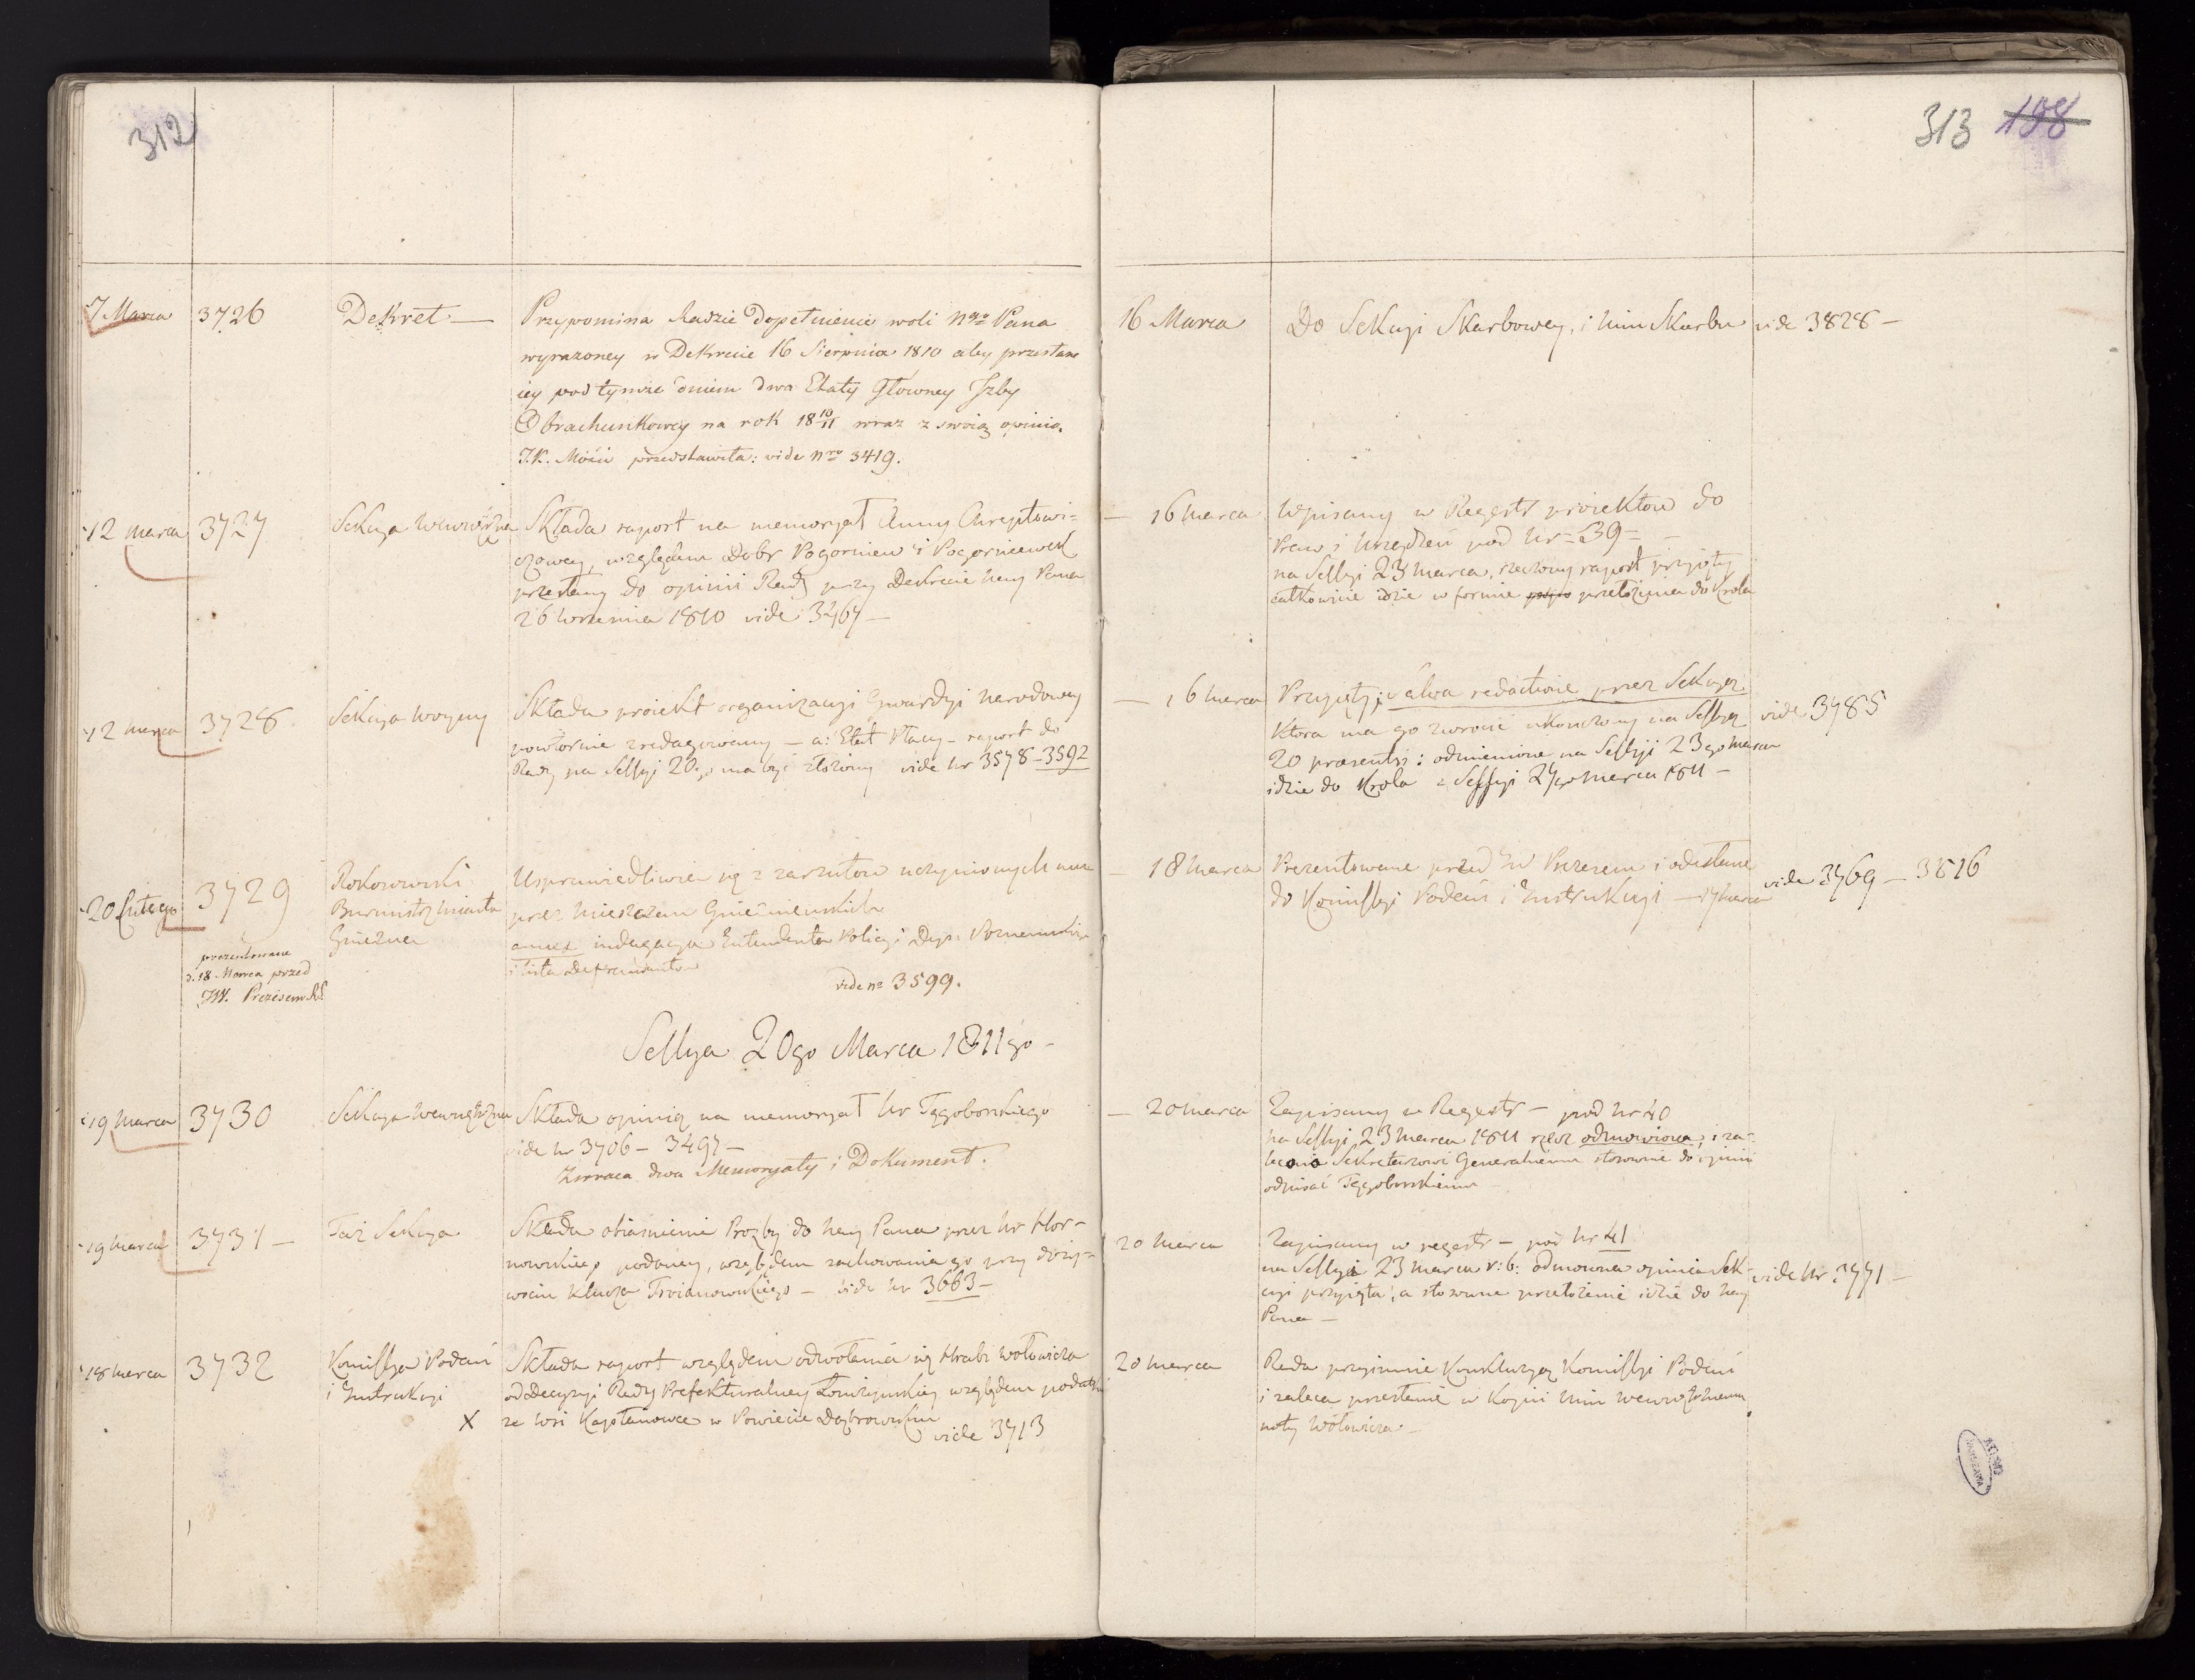 312
7 Marca 3726 Dekret — Przypomina Radzie dopełnienie woli Ngo Pana
wyrazoney w Dekrecie 16 Sierpnia 1810 aby przesłane
iey pod tymże dniem dwa Etaty Główney Jzby
Obrachunkowey na rok 18 10/11 wraz z swoią opinią
J.K. Mości przedstawiła: vide nro 3419.
12 marca 3727 Sekcya Wewnętrzna Składa raport na memoryał Anny Chreptowi=
czowey, względem Dobr Pogorniew i Pogorniewek
przesłany do opinii Rady przy Dekrecie Ney Pana
26 Września 1810 vide 3467 —
12 marca 3728 Sekcya Woyny Składa proiekt organizacyi Gwardyi Narodowey
powtornie zredagowany — a: Etat Płacy — raport do
Rady na Sessyi 20go ma być złożony vide Nr 3578 — 3592
20 Lutego 3729 Rokosowski
Burmistrz Miasta
Gniezna
Usprawiedliwia się z zarzutow uczynionych mu
przez Mieszczan Gnieźnieńskich
annex indagacya Intendenta Policyi Dep. Poznańskiego
i lista Defraudantow
vide no 3599.
prezentowane
d. 18 Marca przed
JW. Prezesem
Sessya 20go Marca 1811go —
19 Marca 3730 Sekcya Wewnętrzna Składa opinią na memoryał Nr Tęgoborskiego
vide Nr 3706 — 3497 —
Zwraca dwa Memoryały i Dokument.
19 Marca 3731 — Taż Sekcya Składa obiaśnienie Prozby do Ney Pana przez Nr Hor=
nowskiego podaney, względem zachowania go przy dzier=
wocie klucza Troianowskiego — vide Nr 3663 —
18 Marca 3732 Komissya Podań
i Instrukcyi
X
Składa raport względem odwołania się Hrabi Wołowicza
od Decyzyi Rady Prefekturalney Łomżyńskiey względem podatku
ze Wsi Kapłanowce w Powiecie Dąbrowskim
vide 3713
313 198
16 Marca Do Sekcyi Skarbowey, i Min Skarbu vide 3828 —
— 16 Marca Wpisany w Regestr proiektow do
Praw i Urządzeń pod Nr = 39 = —
na Sessyi 23 Marca, rzeczony raport przyięty
całkowicie idzie w formie przełożenia do Krola
— 16 Marca Przyięty, salva redactione przez Sekcyą
Ktora ma go zwrocić ukończony na Sessyą vide 3785
20 praesentis: odmieniono na Sessyi 23go Marca
idzie do Krola z Sessyi 27go Marca 1811 —
— 18 Marca Prezentowane przed JW Prezesem i odesłane
do Komissyi Podań i Instrukcyi — 17 Marca vide 3769 — 3816
— 20 Marca Zapisany w Regestr — pod Nr 40
Na Sessyi 23 Marca 1811 rzecz odmowiona, i za=
lecono Sekretarzowi Generalnemu stosownie do opinii
odpisać Tęgoborskiemu —
20 Marca Zapisany w regestr — pod Nr 41
na Sessyi 23 Marca r: b: odmowna opinia Sek=
cyi przyięta, a stosowne przełożenie idzie do Ney vide Nr 3771 —
Pana —
20 Marca Rada przyimuie Konkluzyą Komissyi Podań
i zaleca przesłanie w Kopii Min Wewnętrznemu
noty Wołowicza —